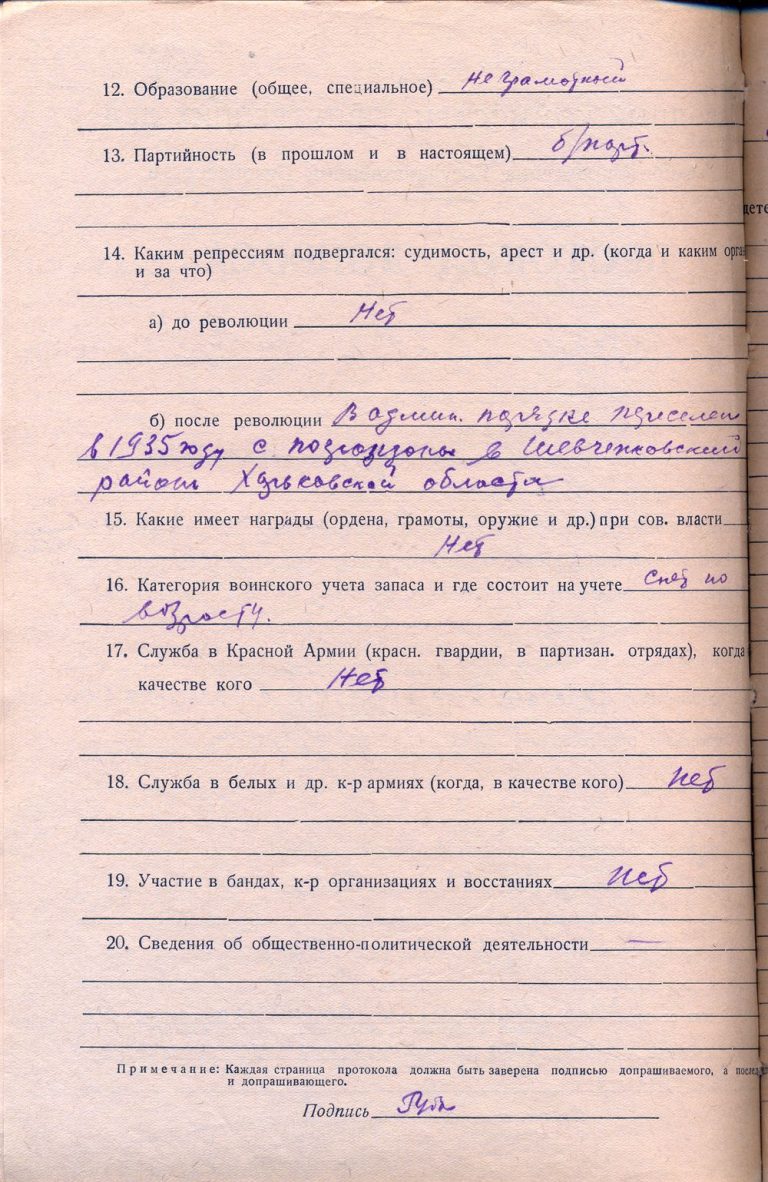 12. Образование (общее, специальное) Не грамотный
13. Партийность (в прошлом и в настоящем) б/парт.
14. Каким репрессиям подвергался: судимость, арест и др. (когда и каким орга
и за что)
а) до революции Нет
б) после революции В админ. порядке переселен
в 1935 году с погранзоны в Шевченковский
район Харьковской области
15. Какие имеет награды (ордена, грамоты, оружие и др.) при сов. власти
Нет
16. Категория воинского учета запаса и где состоит на учете Снят по
возрасту.
17. Служба в Красной Армии (красн. гвардии, в партизан. отрядах), когда
качестве кого Нет
18. Служба в белых и др. к-р армиях (когда, в качестве кого) Нет
19. Участие в бандах, к-р организациях и восстаниях Нет
20. Сведения об общественно-политической деятельности —
Примечание: Каждая страница протокола должна быть заверена подписью допрашиваемого, а послед
и допрашивающего.
Подпись